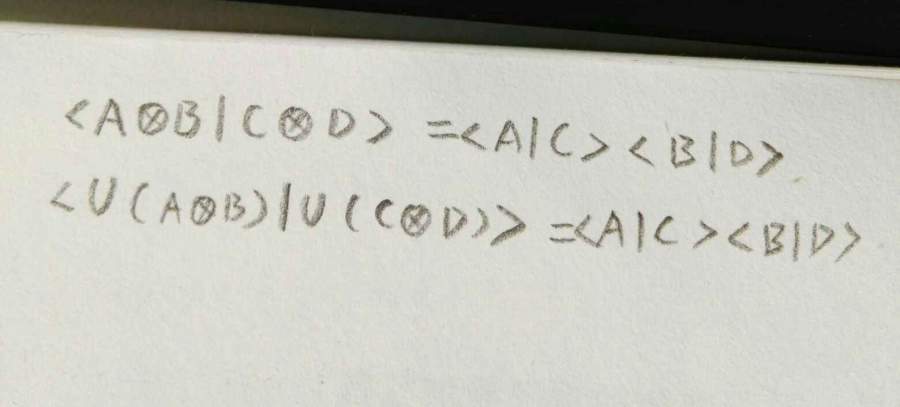 <A⊗B|C⊗D> =<A|C><B|D>
<U(A⊗B)|U(C⊗D)> =<A|C><B|D>